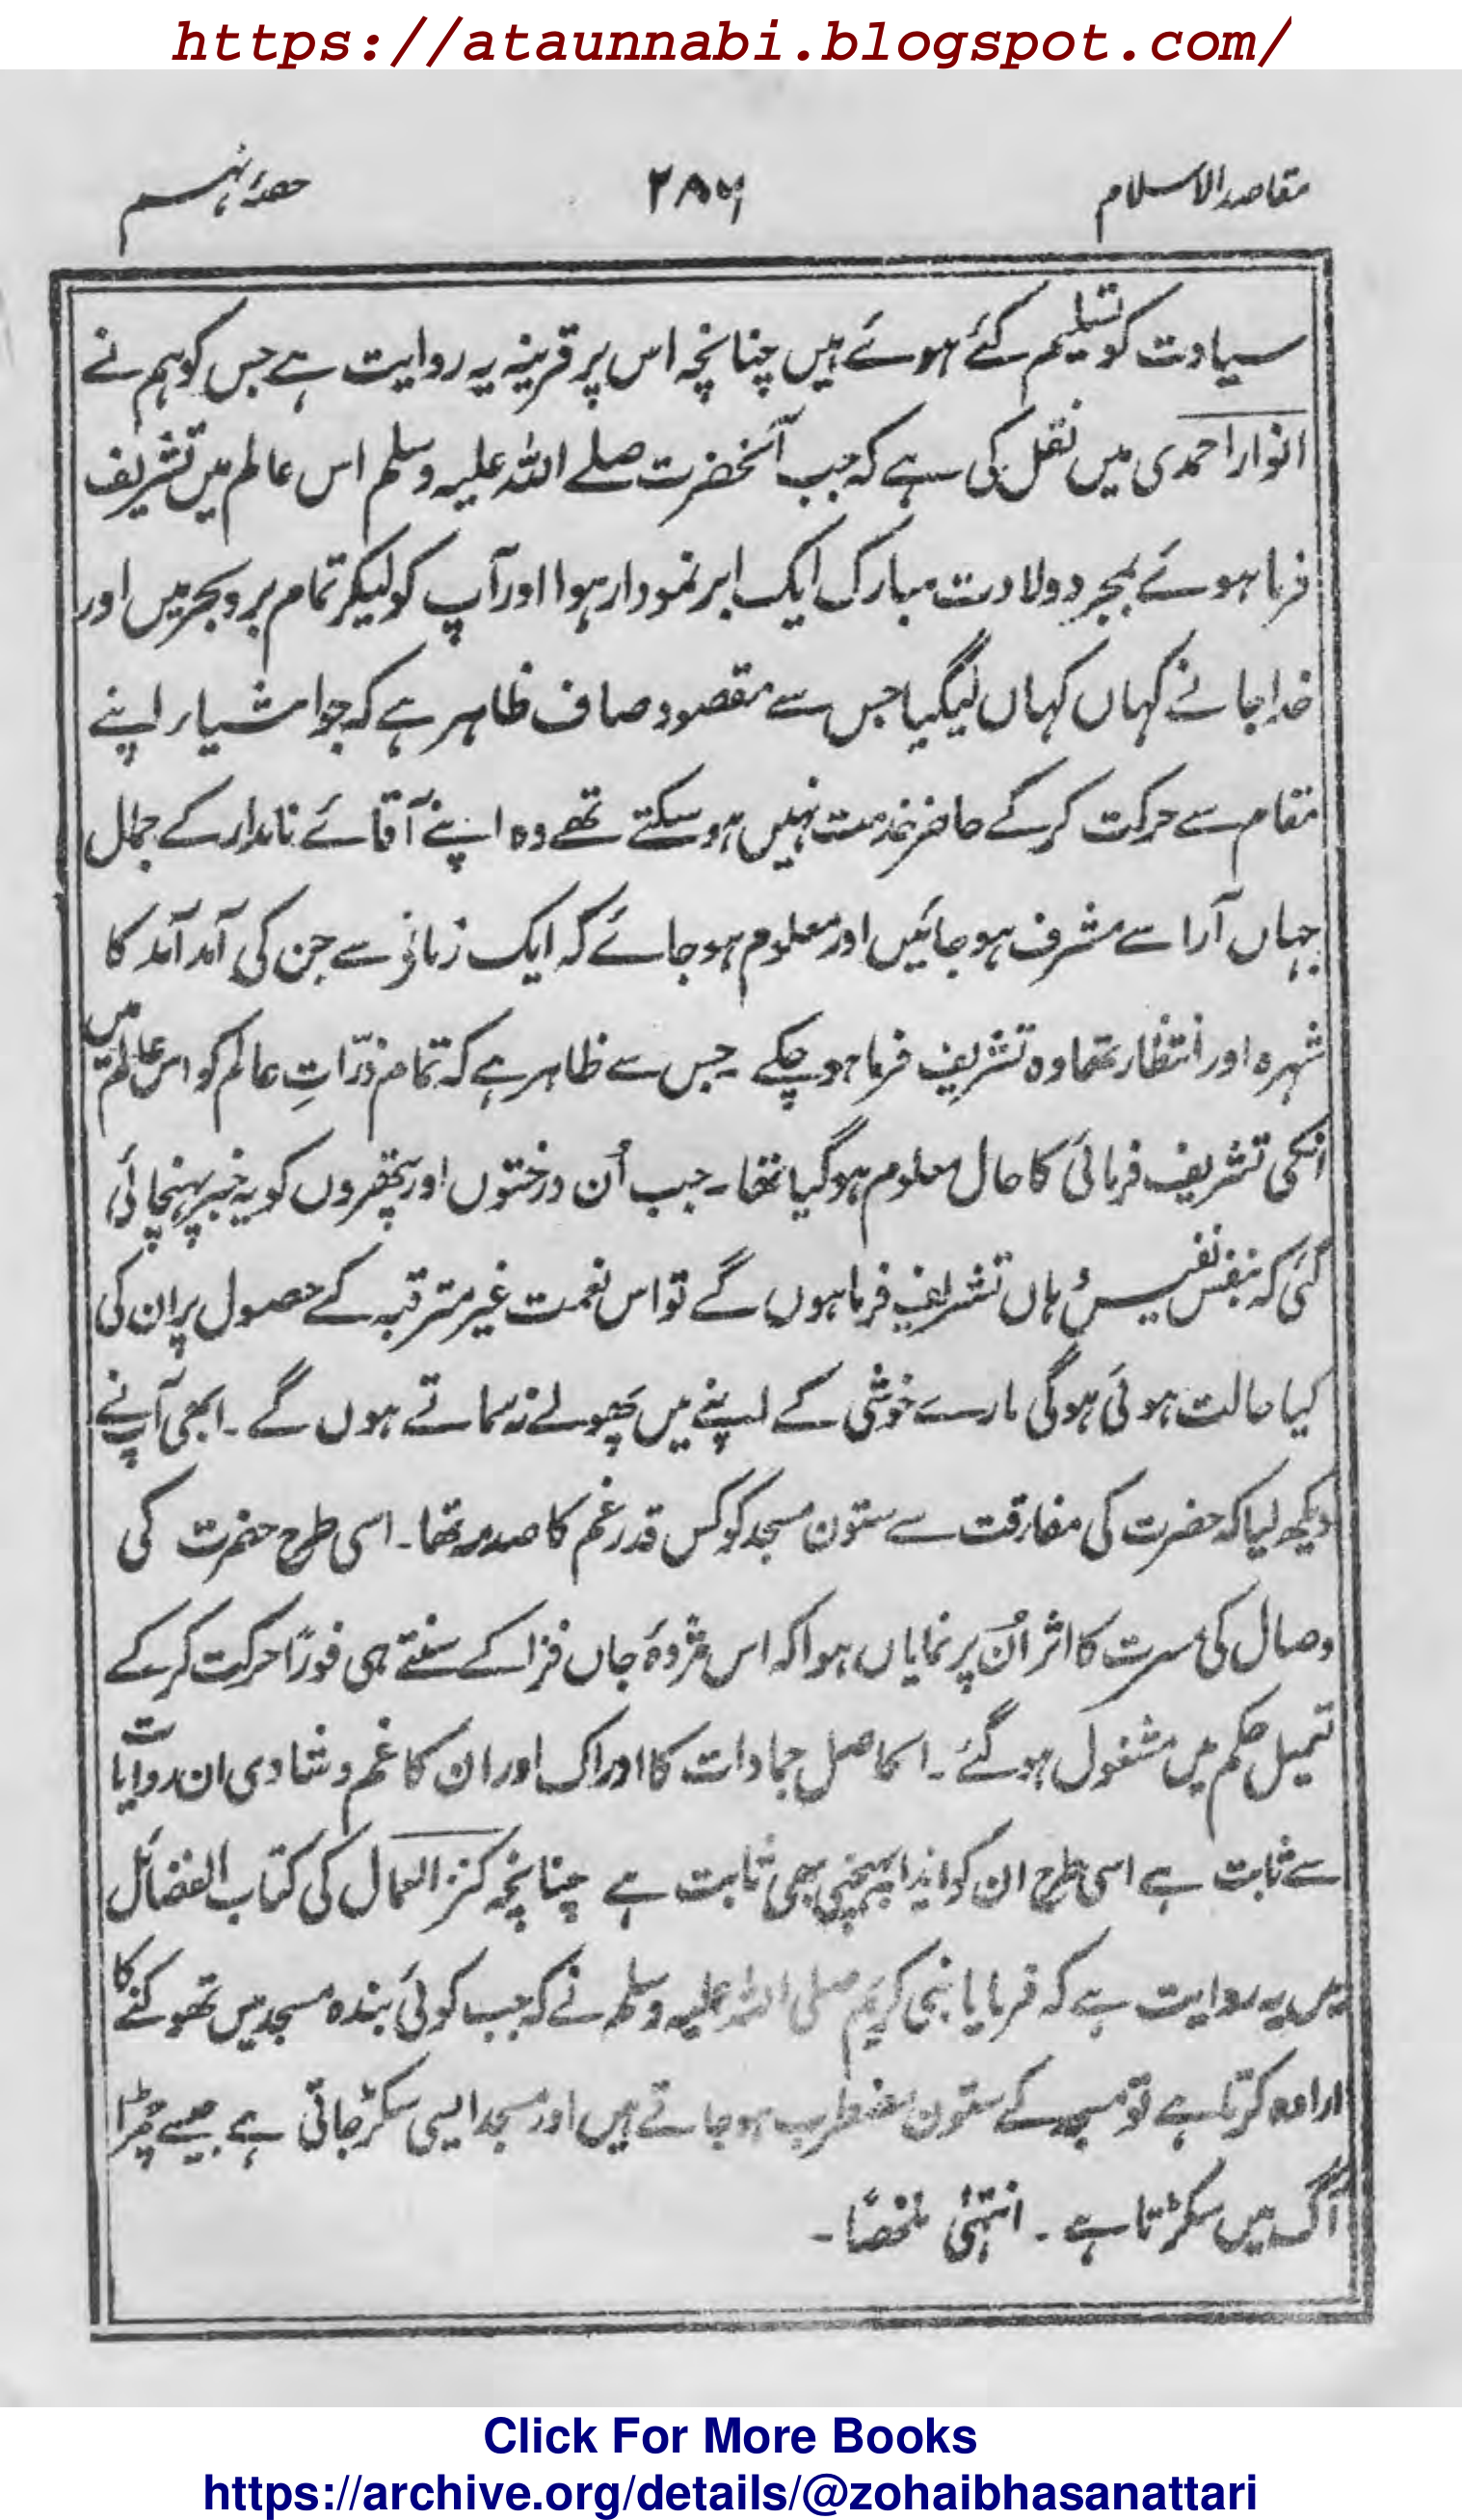 https://ataunnabi.blogspot.com/
مقاصد الاسلام ۲۸۶ حصۂ نہم
سیادت کو تسلیم کئے ہوئے ہیں چنانچہ اس پر قرینہ یہ روایت ہے جس کو ہم نے
انوار احمدی میں نقل کی ہے کہ جب آنحضرت صلے اللہ علیہ وسلم اس عالم میں تشریف
فرما ہوئے بمجرد ولادت مبارک ایک ابر نمودار ہوا اور آپ کو لیکر تمام بر و بحر میں اور
خدا جانے کہاں کہاں لیگیا جس سے مقصود صاف ظاہر ہے کہ جو اشیاء اپنے
مقام سے حرکت کر کے حاضر خدمت نہیں ہو سکتے تھے وہ اپنے آقائے نامدار کے جمال
جہاں آرا سے مشرف ہو جائیں اور معلوم ہو جائے کہ ایک زمانے سے جن کی آمد آمد کا
شہرہ اور انتظار تھا وہ تشریف فرما ہو چکے ۔ جس سے ظاہر ہے کہ تمام ذرّاتِ عالم کو اس عالم میں
انکی تشریف فرمائی کا حال معلوم ہو گیا تھا ۔ جب اُن درختوں اور پتھروں کو یہ خبر پہنچائی
گئی کہ بنفس نفیس وُہاں تشریف فرما ہوں گے تو اس نعمت غیر مترقبہ کے حصول پر ان کی
کیا حالت ہوئی ہوگی مارے خوشی کے اپنے میں پھولے نہ سماتے ہوں گے ۔ ابھی آپ نے
دیکھ لیا کہ حضرت کی مفارقت سے ستون مسجد کو کس قدر غم کا صدمہ تھا ۔ اسی طرح حضرت کی
وصال کی مسرت کا اثر اُن پر نمایاں ہوا کہ اس مژدۂ جاں فزا کے سنتے ہی فورًا حرکت کر کے
تعمیل حکم میں مشغول ہو گئے ۔ الحاصل جمادات کا ادراک اور ان کا غم و شادی ان روایات
سے ثابت ہے اسی طرح ان کو ایذا پہنچنی بھی ثابت ہے چنانچہ کنز العمال کی کتاب الفضائل
میں یہ روایت ہے کہ فرمایا نبی کریم صلی اللہ علیہ وسلم نے کہ جب کوئی بندہ مسجد میں تھوکنے کا
ارادہ کرتا ہے تو مسجد کے ستون مضطرب ہو جاتے ہیں اور مسجد ایسی سکڑ جاتی ہے جیسے چمڑا
آگ میں سکڑتا ہے ۔ انتہیٰ ملخصًا ۔
Click For More Books
https://archive.org/details/@zohaibhasanattari